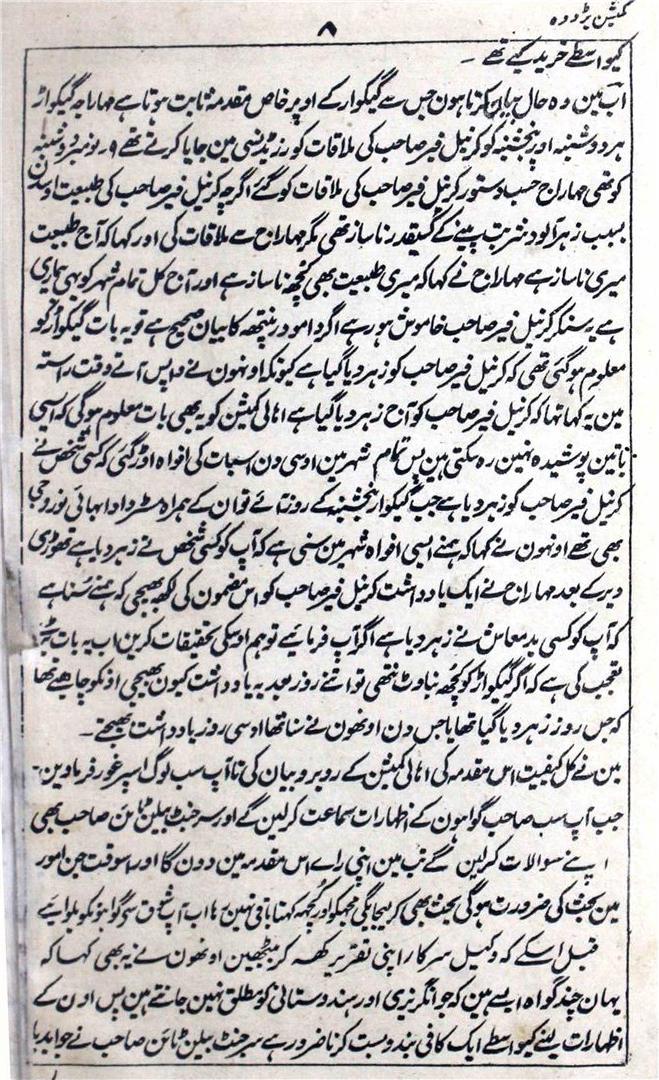 کمیشن بڑودہ
۸
کیواسطے خرید کیے تھے ۔
اب مین وہ حال بیان کرتا ہون جس سے گیکوار کے اوپر خاص مقدمہ ثابت ہوتا ہے مہاراجہ گیکواڑ
ہر دوشنبہ اور پنجشنبہ کو کرنیل فیر صاحب کی ملاقات کو رزیڈنسی مین جایا کرتے تھے ۹ ۔ نومبر دوشنبہ
کو بھی مہاراج حسب دستور کرنیل فیر صاحب کی ملاقات کو گئے اگرچہ کرنیل فیر صاحب کی طبیعت اوسدن
بسبب زہر آلودہ شربت پینے کے کسیقدر ناساز تھی مگر مہاراج سے ملاقات کی اور کہا کہ آج طبیعت
میری ناساز ہے مہاراج نے کہا کہ میری طبیعت بھی کچھ ناساز ہے اور آج کل تمام شہر کو یہی بیماری
ہے یہ سنکر کرنیل فیر صاحب خاموش ہو رہے اگر دامودر پنتھہ کا بیان صحیح ہے تو یہ بات گیکواڑ کو
معلوم ہو گئی تھی کہ کرنیل فیر صاحب کو زہر دیا گیا ہے کیونکہ اونہون نے واپس آتے وقت راستہ
مین یہ کہا تھا کہ کرنیل فیر صاحب کو آج زہر دیا گیا ہے اہالی کمیشن کو یہ بھی بات معلوم ہو گی کہ ایسی
باتین پوشیدہ نہین رہ سکتی ہین پس تمام شہر مین اوسی دن اسبات کی افواہ اوڑ گئی کہ کسی شخص نے
کرنیل فیر صاحب کو زہر دیا ہے جب گیکوار پنجشنبہ کے روز آئے تو ان کے ہمراہ مسٹر دادابہائی نوروجی
بھی تھے اونہون نے کہا کہ ہمنے ایسی افواہ شہر مین سنی ہے کہ آپ کو کسی شخص نے زہر دیا ہے تھوڑی
دیر کے بعد مہاراج نے ایک یادداشت کرنیل فیر صاحب کو اس مضمون کی لکھ بھیجی کہ ہمنے سنا ہے
کہ آپ کو کسی بدمعاش نے زہر دیا ہے اگر آپ فرمائیے تو ہم اوسکی تحقیقات کرین اب یہ بات بڑے
تعجب کی ہے کہ اگر گیکواڑ کو کچھ بناوٹ نتھی تو اتنے روز بعد یہ یادداشت کیون بھیجی اونکو چاہیے تھا
کہ جس روز زہر دیا گیا تھا یا جس دن اونھون نے سنا تھا اوسی روز یادداشت بھیجتے ۔
مین نے کل کیفیت اس مقدمہ کی اہالی کمیشن کے روبرو بیان کی تا آپ سب لوگ اسپر غور فرماوین ۔
جب آپ سب صاحب گواہون کے اظہارات سماعت کر لین گے اور سرجنٹ بیلن ٹائن صاحب بھی
اپنے سوالات کر لین گے تب مین اپنی راے اس مقدمہ مین دون گا اور اسوقت جن امور
مین بحث کی ضرورت ہو گی بحث بھی کر لیجائیگی مجھکو اور کچھ کہنا باقی نہین رہا اب آپ شوق سے گواہونکو بلوائیے
قبل اسکے کہ وکیل سرکار اپنی تقریر کھہ کر بیٹھین اونھون نے یہ بھی کہا کہ
یہان چند گواہ ایسے ہین کہ جو انگریزی اور ہندوستانی کو مطلق نہین جانتے ہین پس اون کے
اظہارات لینے کیواسطے ایک کافی بندوبست کرنا ضرور ہے سرجنٹ بیلن ٹائن صاحب نے جواب دیا